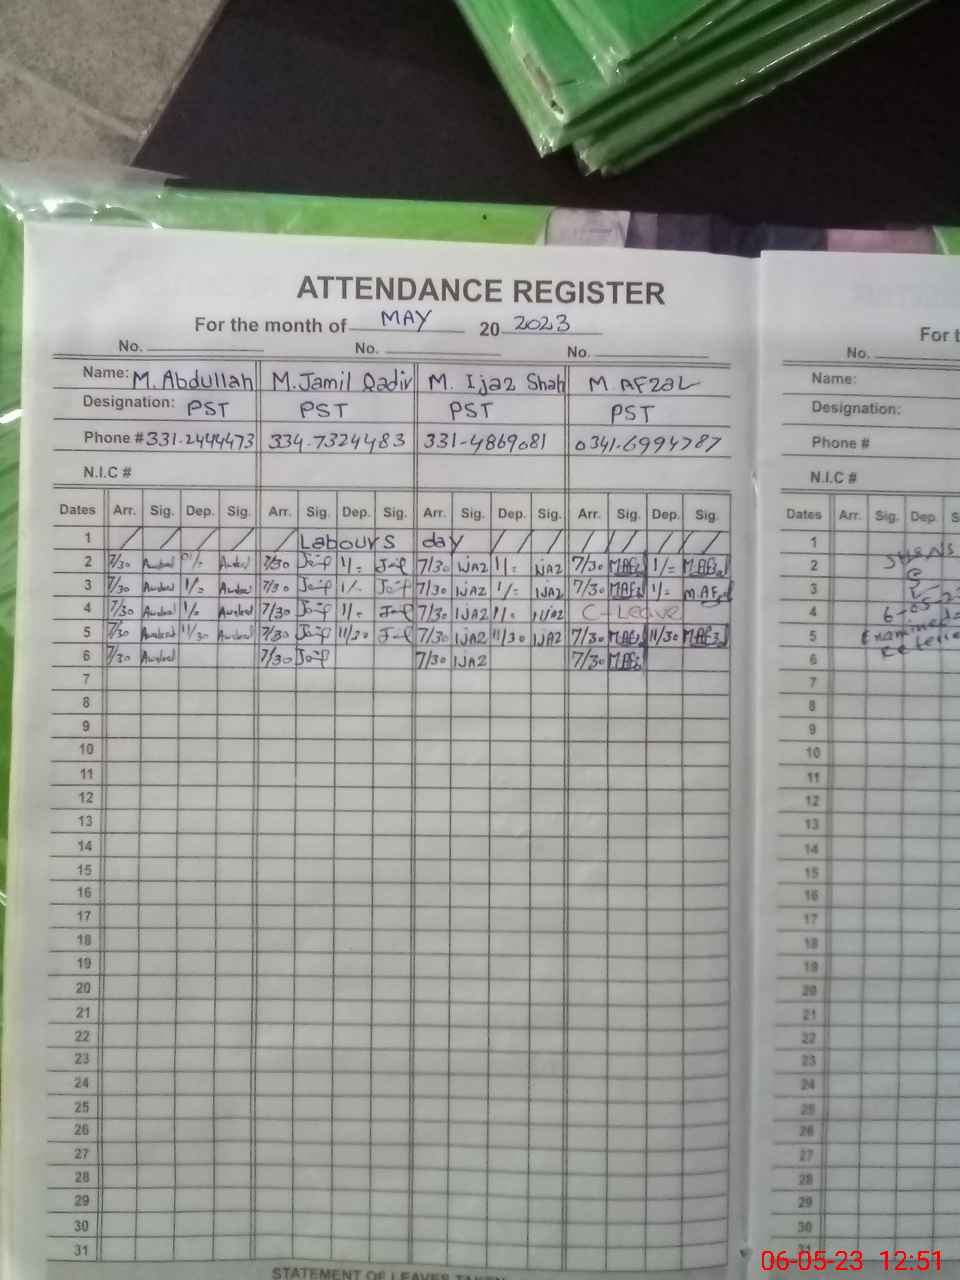 ATTENDANCE REGISTER
For the month of MAY 20 2023
No. No. No.
Name: M. Abdullah M. Jamil Qadir M. Ijaz Shah M. AFZAL
Designation: PST PST PST PST
Phone # 331.2444473 334.7324483 331-4869081 0341.6994787
N.I.C #
Dates Arr. Sig. Dep. Sig. Arr. Sig. Dep. Sig. Arr. Sig. Dep. Sig. Arr. Sig. Dep. Sig.
1 Labours day
2 7/30 7/30 1/= 7/30 IJAZ 1/= IJAZ 7/30 MAFz 1/= MAFz
3 7/30 1/= 7/30 1/- 7/30 IJAZ 1/= IJAZ 7/30 MAFz 1/=
4 7/30 1/= 7/30 1/= 7/30 IJAZ 1/= IJAZ C-Leave
5 7/30 11/30 7/30 11/30 7/30 IJAZ 11/30 IJAZ 7/30 MAFz 11/30 MAFz
6 7/30 7/30 7/30 IJAZ 7/30 MAFz
7
8
9
10
11
12
13
14
15
16
17
18
19
20
21
22
23
24
25
26
27
28
29
30
31
STATEMENT OF LEAVES TAKEN
For t
No.
Name:
Designation:
Phone #
N.I.C #
Dates Arr. Sig. Dep.
1
2
3
4 6-05-23
5 Examined
6
7
8
9
10
11
12
13
14
15
16
17
18
19
20
21
22
23
24
25
26
27
28
29
30
31
06-05-23 12:51